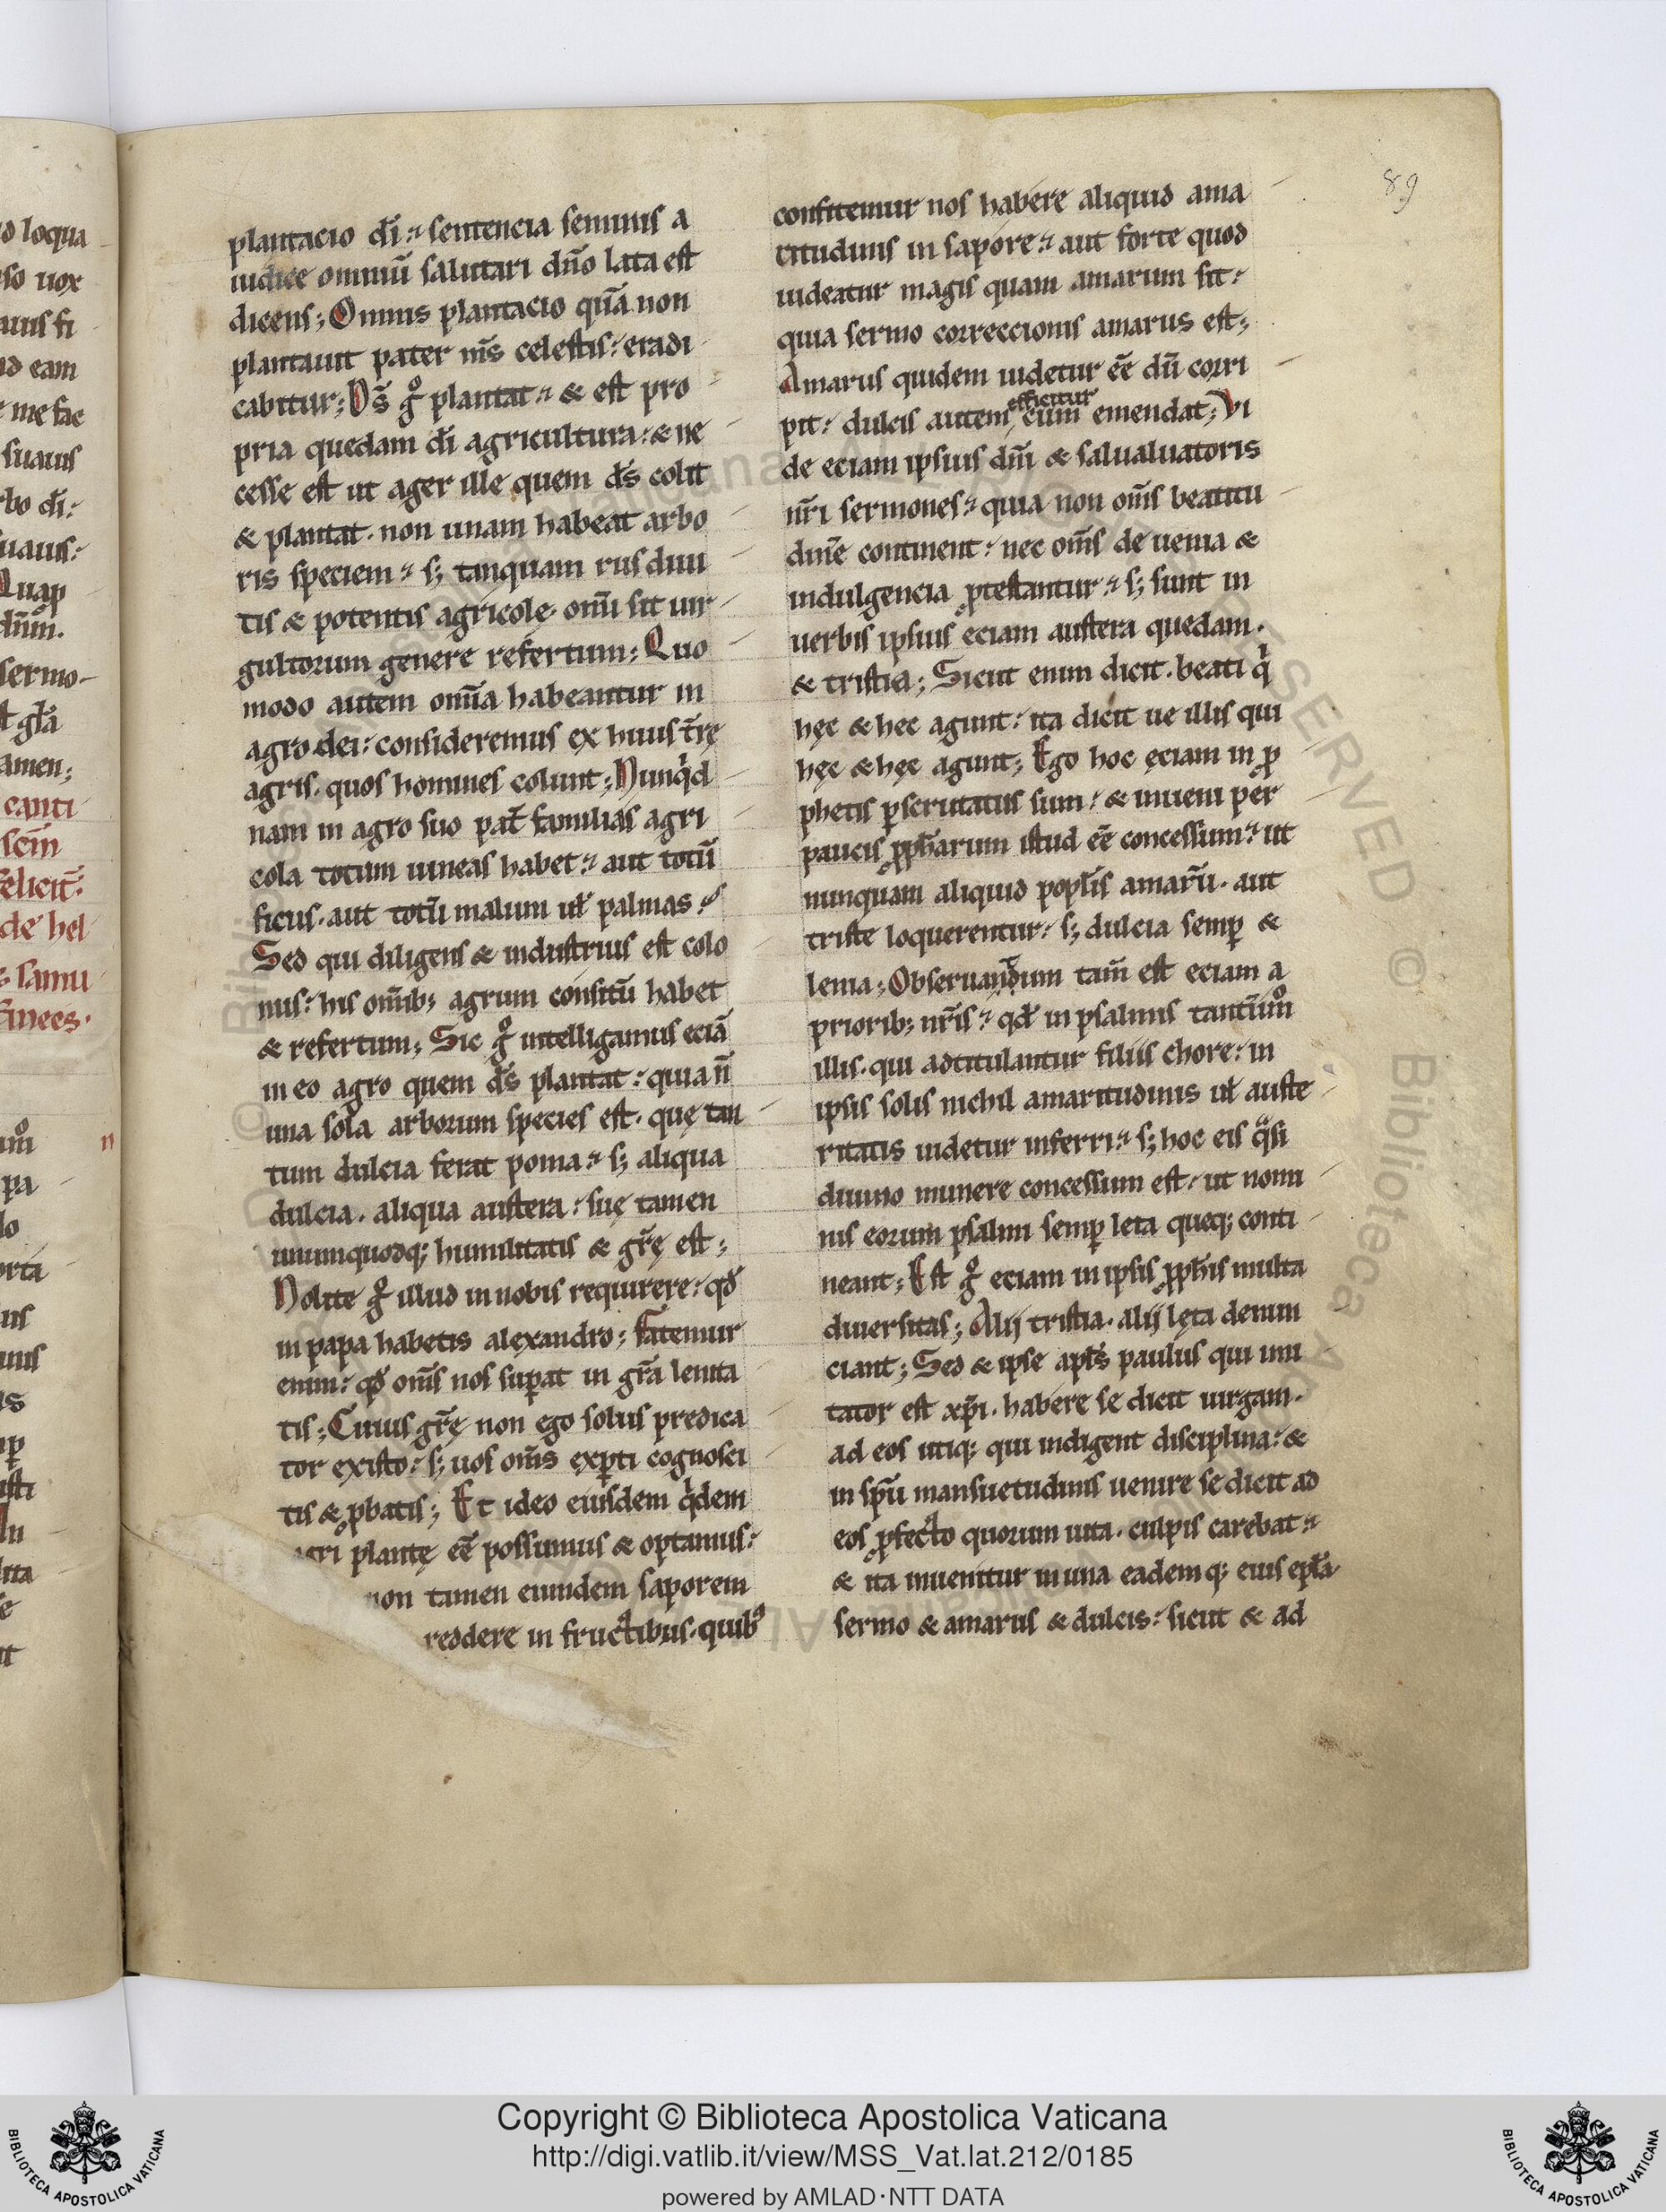 89
plantacio dī: sentencia seminis a
iudice omniū salutari dn̄o lata est
dicens; Omnis plantacio quā non
plantauit pater m̄s celestis: eradi
cabitur; Ds̄ gͦ plantat: & est pro
pria quedam dī agricultura: & ne
cesse est ut ager ille quem ds̄ colit
& plantat. non unam habeat arbo
ris speciem: s; tanquam rus diui
tis & potentis agricole. omī sit uir
gultorum genere refertum; Quo
modo autem om̄a habeantur in
agro dei: consideremus ex huius tr̄ę
agris. quos homines colunt; Nunqͥd
nam in agro suo pat̄ familias agri
cola totum uineas habet: aut totū
ficus. aut totū malum ul̄ palmas:
Sed qui diligens & industrius est colo
nus: his om̄ib; agrum consitū habet
& refertum; Sic gͦ intelligamus eciā
in eo agro quem ds̄ plantat: quia n̄
una sola arborum species est. quę tan
tum dulcia ferat poma: s; aliqua
dulcia. aliqua austera: suę tamen
unumquodq; humilitatis & gr̄ę est;
Nolite gͦ illud in nobis requirere: qd̄
in papa habetis alexandro; Fatemur
enim: qd̄ om̄s nos sup̱at in gr̄a lenita
tis; Cuius gr̄ę non ego solus predica
tor existo: s; uos om̄s exp̱ti cognosci
tis & ꝓbatis; Et ideo eiusdem qͥdem
agri plantę eē possumus & optamus:
non tamen eundem saporem
reddere in fructibus. quibꝰ
confitemur nos habere aliquid ama
ritudinis in sapore: aut forte quod
uideatur magis quam amarum sit:
quia sermo correccionis amarus est;
Amarus quidem uidetur eē dū corri
efficitur
pit: dulcis autem, cum emendat; Vi
de eciam ipsius dn̄i & salualuatoris
nr̄i sermones: quia non om̄s beatitu
dinē continent: nec om̄s de uenia &
indulgencia ꝓtestantur: s; sunt in
uerbis ipsius eciam austera quedam.
& tristia; Sicut enim dicit. beati qͥ
hęc & hec agunt: ita dicit ue illis qui
hęc & hęc agunt; Ego hoc ęciam in ꝓ
phetis ꝑscrutatus sum: & inueni per
paucis ꝓph̄arum istud eē concessum: ut
nunquam aliquid popl̄is amarū. aut
triste loquerentur: s; dulcia semꝑ &
lenia; Obseruandum tam̄ est eciam a
priorib; nr̄is: qd̄ in psalmis tantūmͦ
illis. qui adtitulantur filiis chore: in
ipsis solis nichil amaritudinis ul̄ auste
ritatis uidetur inferri: s; hoc eis qͣsi
diuino munere concessum est: ut nomi
nis eorum psalmi semꝑ leta queq; conti
neant; Est gͦ eciam in ipsis ꝓph̄is multa
diuersitas; Alij tristia. alij lęta denun
ciant; Sed & ipse apl̄s paulus qui imi
tator est xp̄i. habere se dicit uirgam.
ad eos utiq; qui indigent disciplina: &
in spū mansuetudinis uenire se dicit ad
eos ꝓfecto quorum uita. culpis carebat:
& ita inuenitur in una eademq; eius epl̄a.
sermo & amarus & dulcis: sicut & ad
Copyright © Biblioteca Apostolica Vaticana
http://digi.vatlib.it/view/MSS_Vat.lat.212/0185
powered by AMLAD·NTT DATA